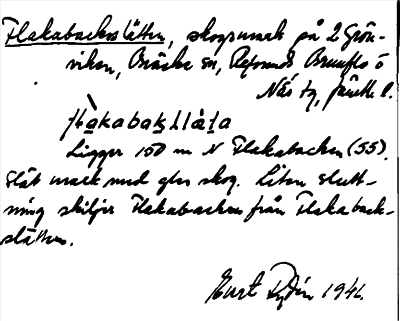 Flakabackslätten, skogsmark på 2 Grön-
viken, Bräcke sn, Refsunds Brunflo o
Näs tg, Jämtl. l.
flàkabakslæ̀ta
Ligger 150 m N Flakabacken (55).
Slät mark med gles skog. Liten slutt-
ning skiljer Flakabacken från Flakaback-
slätten.
Kurt 1941.